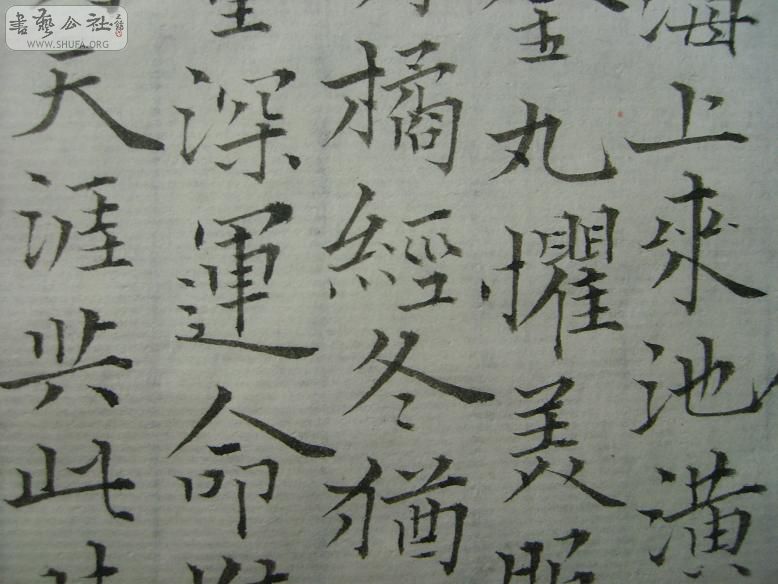 書藝公社
WWW.SHUFA.ORG
海上來池潢
丸懼美
橘經冬猶
深運命
天涯共此